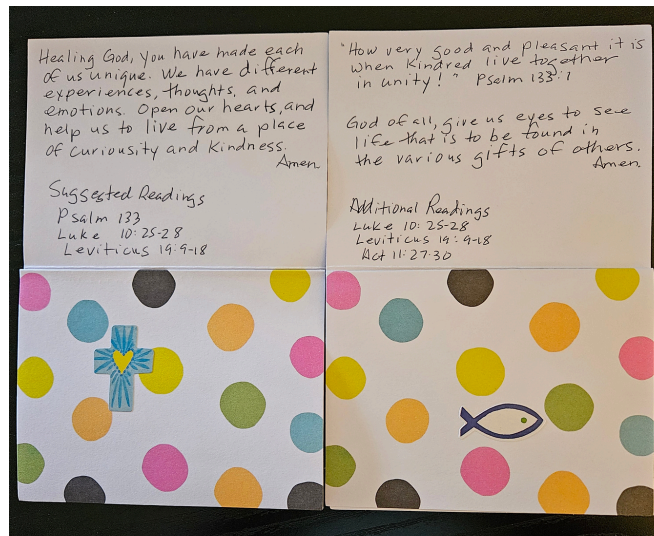 Healing God, you have made each
of us unique. We have different
experiences, thoughts, and
emotions. Open our hearts, and
help us to live from a place
of curiousity and kindness.
Amen
Suggested Readings
Psalm 133
Luke 10:25-28
Leviticus 19:9-18
"How very good and pleasant it is
when kindred live together
in unity!" Psalm 133:1
God of all, give us eyes to see
life that is to be found in
the various gifts of others.
Amen.
Additional Readings
Luke 10:25-28
Leviticus 19:9-18
Act 11:27-30